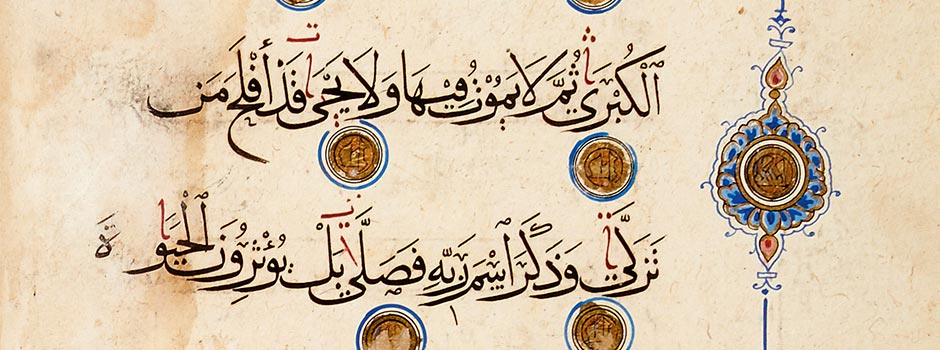 الْكُبْرَى ثُمَّ لَا يَمُوْتُ فِيْهَا وَلَا يَحْيَى قَدْ أَفْلَحَ مَن
تَزَكَّى وَذَكَرَ اسْمَ رَبِّهِ فَصَلَّى بَلْ يُؤْثِرُونَ الْحَيَوةَ